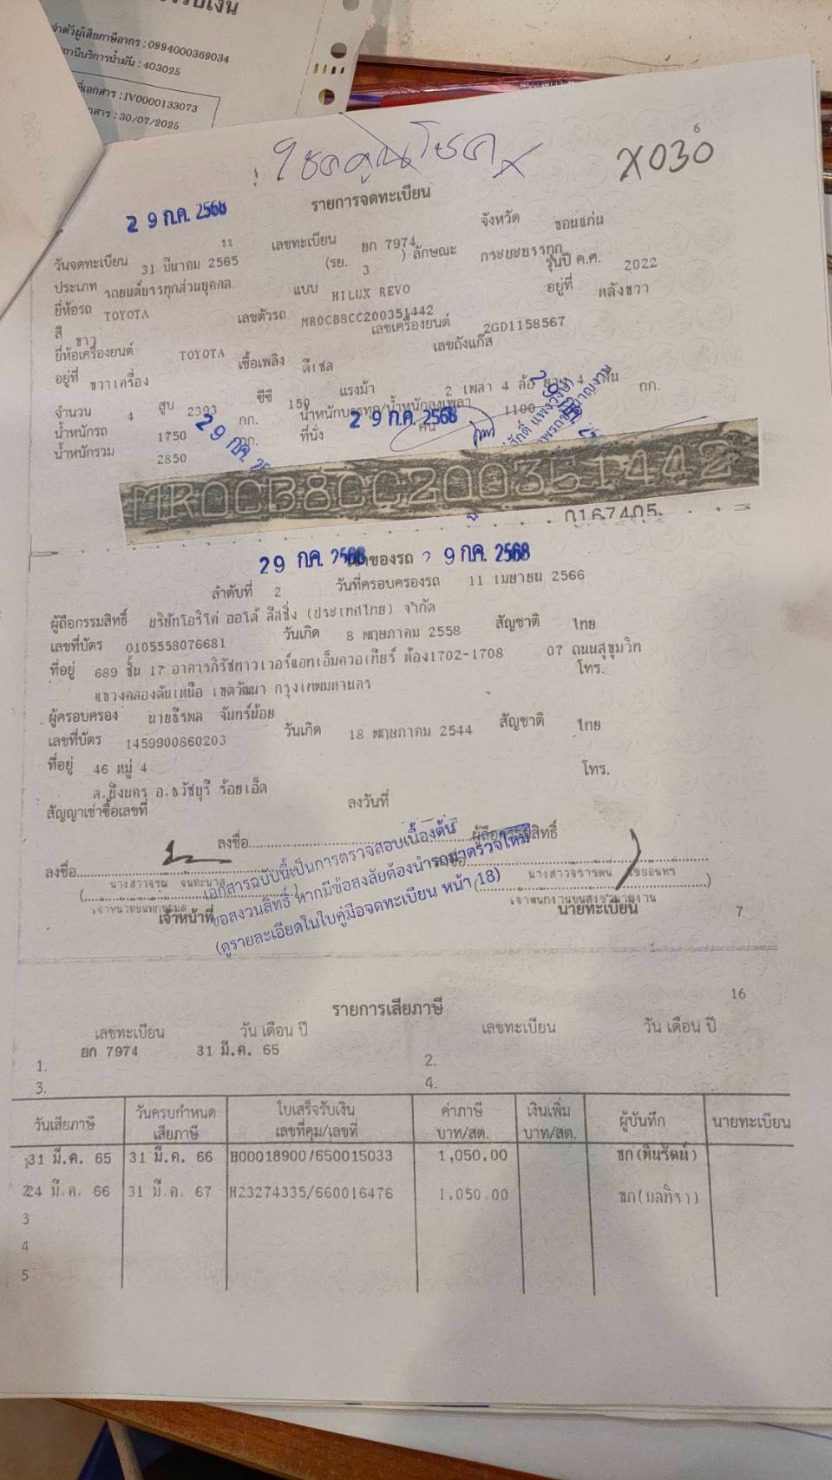 รับเงิน
จำตัวผู้เสียภาษีอากร : 0994000369034
ถานีบริการน้ำมัน : 403025
ที่เอกสาร : IV0000133073
เอกสาร : 30/07/2025
โชคคูณโชค
X030
6
29 ก.ค. 2568
รายการจดทะเบียน
วันจดทะเบียน 31 มีนาคม 2565 เลขทะเบียน ยก 7974 จังหวัด ขอนแก่น
ประเภท รถยนต์บรรทุกส่วนบุคคล (รย. 3 ) ลักษณะ กระบะบรรทุก
ยี่ห้อรถ TOYOTA แบบ HILUX REVO รุ่นปี ค.ศ. 2022
สี ขาว เลขตัวรถ MR0CB8CC200351442 อยู่ที่ หลังขวา
ยี่ห้อเครื่องยนต์ TOYOTA เลขเครื่องยนต์ 2GD1158567
อยู่ที่ ขวาเครื่อง เชื้อเพลิง ดีเซล เลขถังแก๊ส
จำนวน 4 สูบ 2393 ซีซี 150 แรงม้า 2 เพลา 4 ล้อ ยาง 4 เส้น
น้ำหนักรถ 1750 กก. น้ำหนักบรรทุก/น้ำหนักลงเพลา 1100 กก.
น้ำหนักรวม 2850 กก. ที่นั่ง คน
29 ก.ค. 2568
MR0CB8CC200351442
0167405
29 กค. 2568 เจ้าของรถ 29 กค. 2568
ลำดับที่ 2 วันที่ครอบครองรถ 11 เมษายน 2566
ผู้ถือกรรมสิทธิ์ บริษัทโอริโค่ ออโต้ ลีสซิ่ง (ประเทศไทย) จำกัด
เลขที่บัตร 0105558076681 วันเกิด 8 พฤษภาคม 2558 สัญชาติ ไทย
ที่อยู่ 689 ชั้น 17 อาคารภิรัชทาวเวอร์แอทเอ็มควอเทียร์ ห้อง1702-1708 07 ถนนสุขุมวิท
แขวงคลองตันเหนือ เขตวัฒนา กรุงเทพมหานคร โทร.
ผู้ครอบครอง นายธีรพล จันทร์น้อย
เลขที่บัตร 1459900860203 วันเกิด 18 พฤษภาคม 2544 สัญชาติ ไทย
ที่อยู่ 46 หมู่ 4 โทร.
ต.บึงนคร อ.ธวัชบุรี ร้อยเอ็ด
สัญญาเช่าซื้อเลขที่ ลงวันที่
ลงชื่อ ผู้ถือกรรมสิทธิ์
ลงชื่อ
เจ้าหน้าที่ นายทะเบียน
เอกสารฉบับนี้เป็นการตรวจสอบเบื้องต้น
ขอสงวนสิทธิ์ หากมีข้อสงสัยต้องนำรถมาตรวจใหม่
(ดูรายละเอียดในใบคู่มือจดทะเบียน หน้า 18)
7
16
รายการเสียภาษี
เลขทะเบียน วัน เดือน ปี เลขทะเบียน วัน เดือน ปี
1. ยก 7974 31 มี.ค. 65 2.
3. 4.
วันเสียภาษี วันครบกำหนดเสียภาษี ใบเสร็จรับเงิน เลขที่คุม/เลขที่ ค่าภาษี บาท/สต. เงินเพิ่ม บาท/สต. ผู้บันทึก นายทะเบียน
31 มี.ค. 65 31 มี.ค. 66 H00018900/650015033 1,050.00
24 มี.ค. 66 31 มี.ค. 67 H23274335/660016476 1,050.00
3
4
5